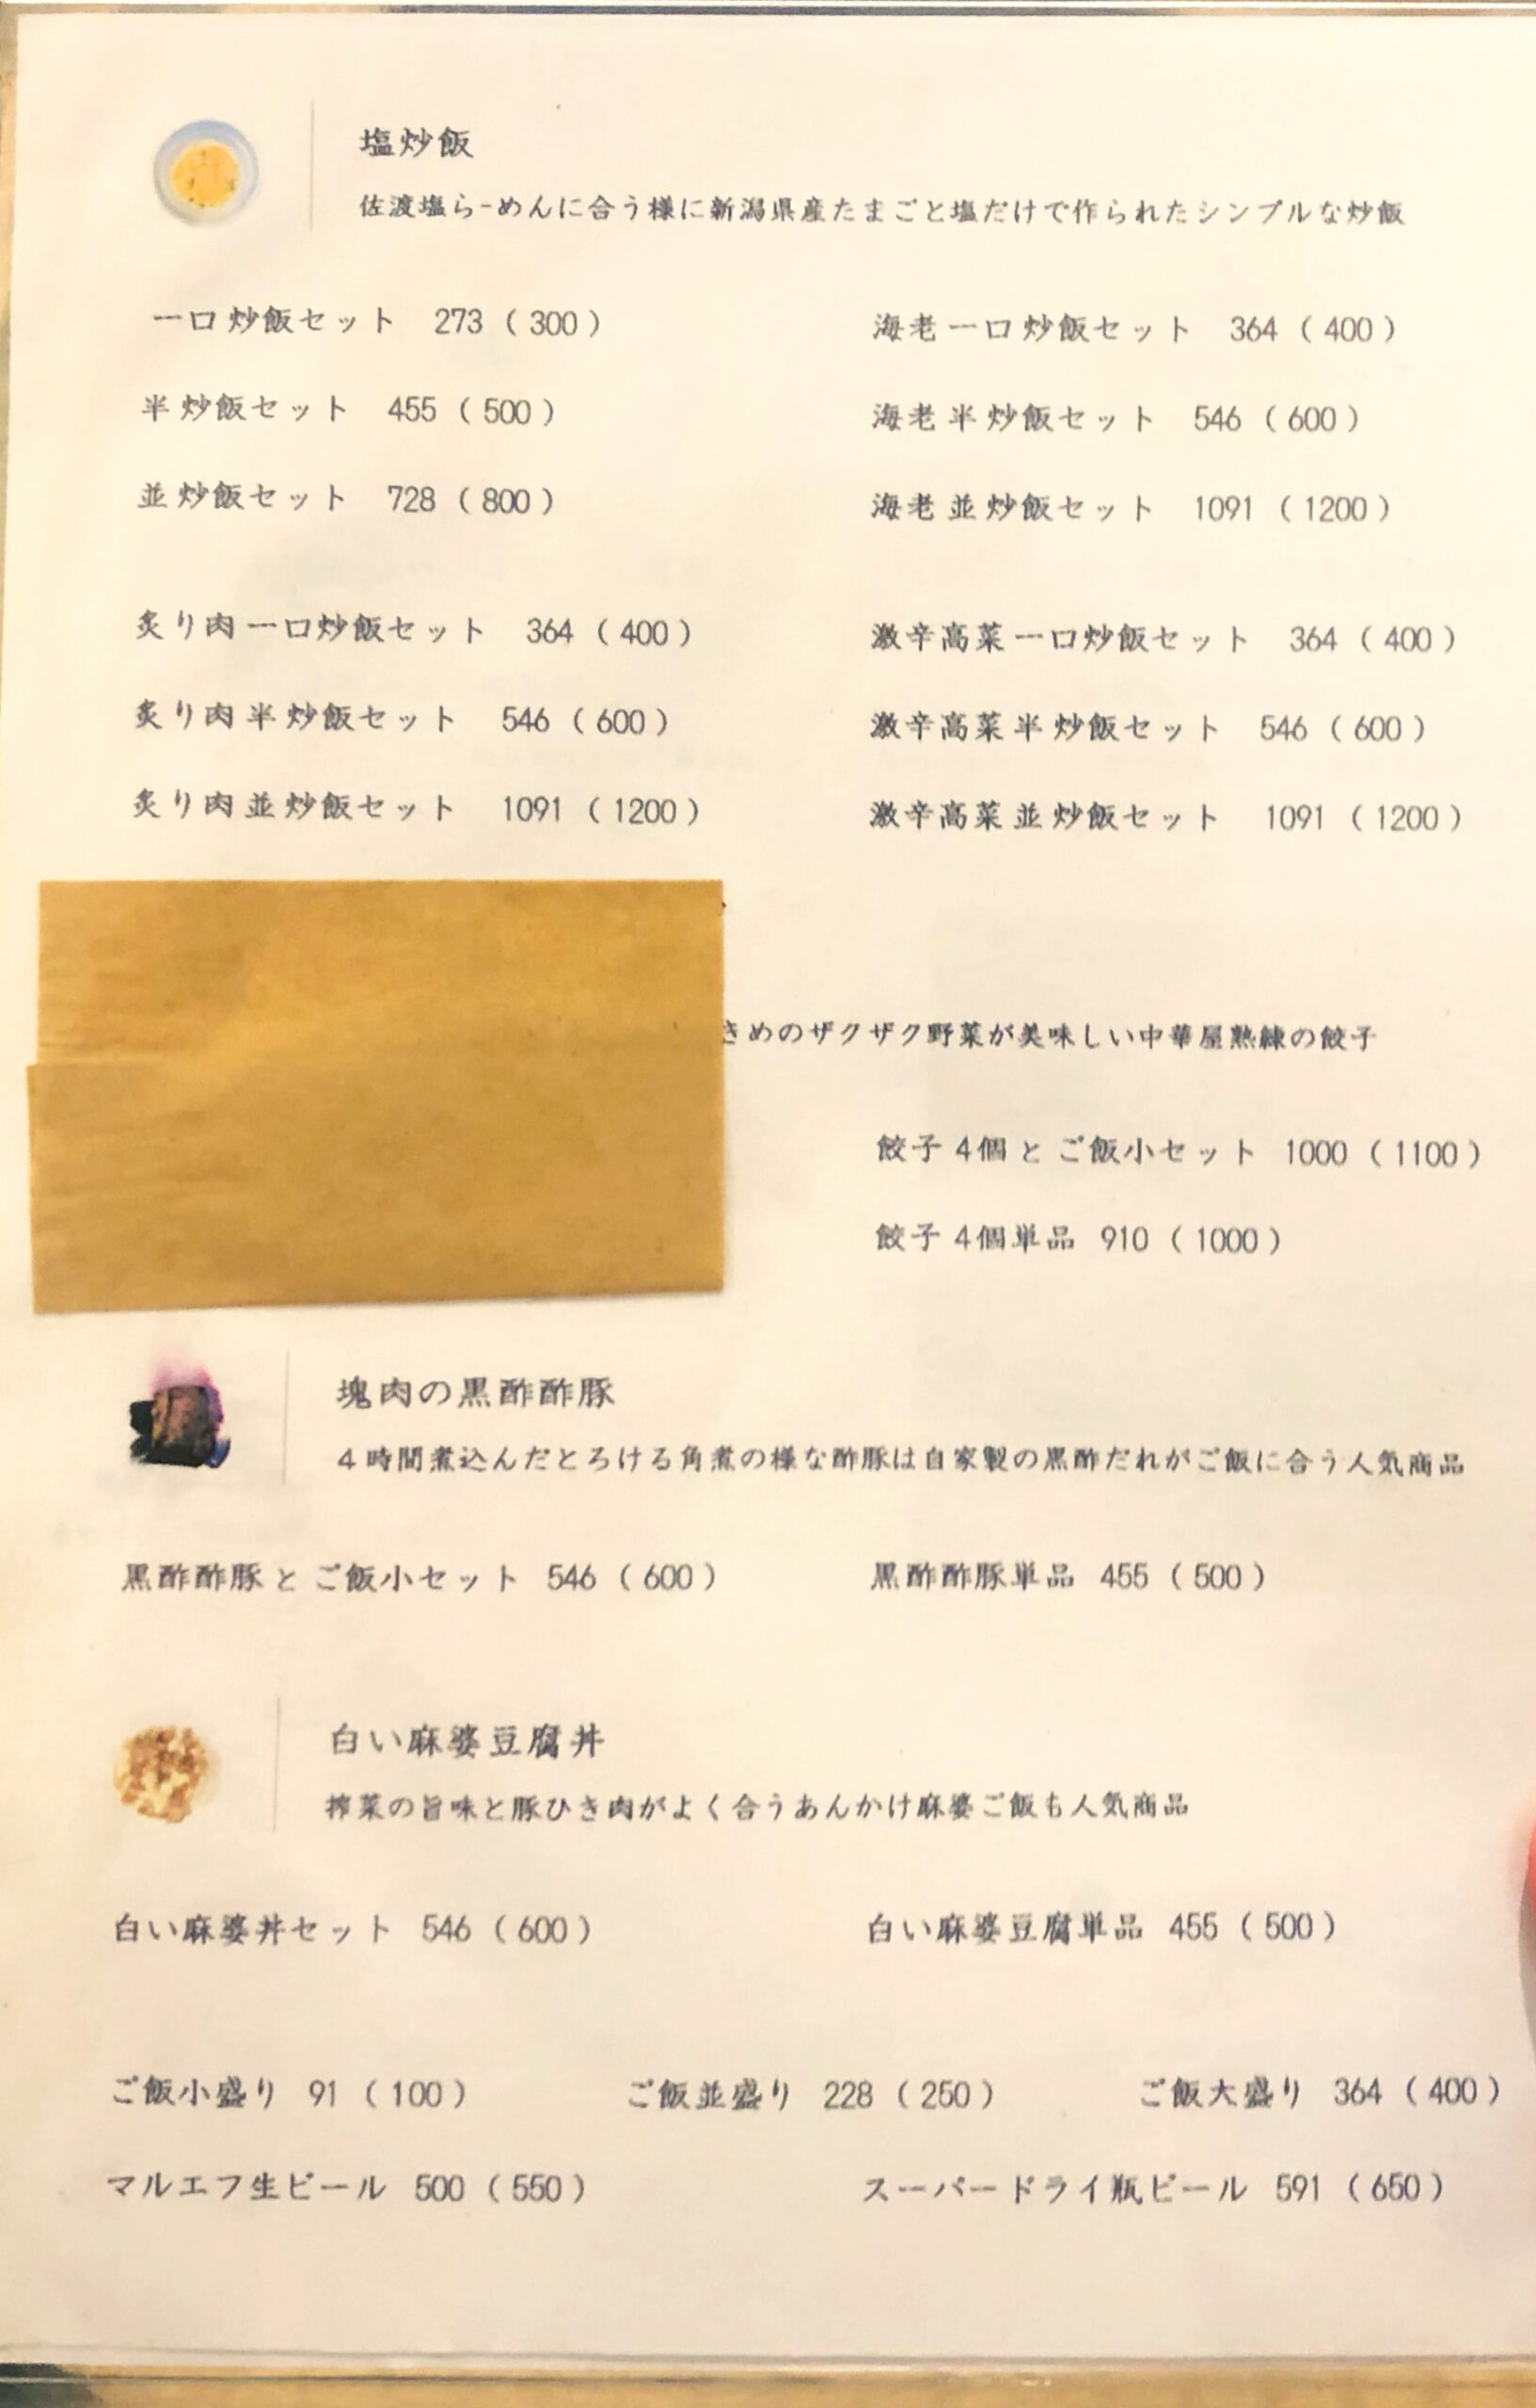 塩炒飯
佐渡塩らーめんに合う様に新潟県産たまごと塩だけで作られたシンプルな炒飯
一口炒飯セット 273 ( 300 )
海老一口炒飯セット 364 ( 400 )
半炒飯セット 455 ( 500 )
海老半炒飯セット 546 ( 600 )
並炒飯セット 728 ( 800 )
海老並炒飯セット 1091 ( 1200 )
炙り肉一口炒飯セット 364 ( 400 )
激辛高菜一口炒飯セット 364 ( 400 )
炙り肉半炒飯セット 546 ( 600 )
激辛高菜半炒飯セット 546 ( 600 )
炙り肉並炒飯セット 1091 ( 1200 )
激辛高菜並炒飯セット 1091 ( 1200 )
きめのザクザク野菜が美味しい中華屋熟練の餃子
餃子4個とご飯小セット 1000 ( 1100 )
餃子4個単品 910 ( 1000 )
塊肉の黒酢酢豚
4時間煮込んだとろける角煮の様な酢豚は自家製の黒酢だれがご飯に合う人気商品
黒酢酢豚とご飯小セット 546 ( 600 )
黒酢酢豚単品 455 ( 500 )
白い麻婆豆腐丼
搾菜の旨味と豚ひき肉がよく合うあんかけ麻婆ご飯も人気商品
白い麻婆丼セット 546 ( 600 )
白い麻婆豆腐単品 455 ( 500 )
ご飯小盛り 91 ( 100 )
ご飯並盛り 228 ( 250 )
ご飯大盛り 364 ( 400 )
マルエフ生ビール 500 ( 550 )
スーパードライ瓶ビール 591 ( 650 )